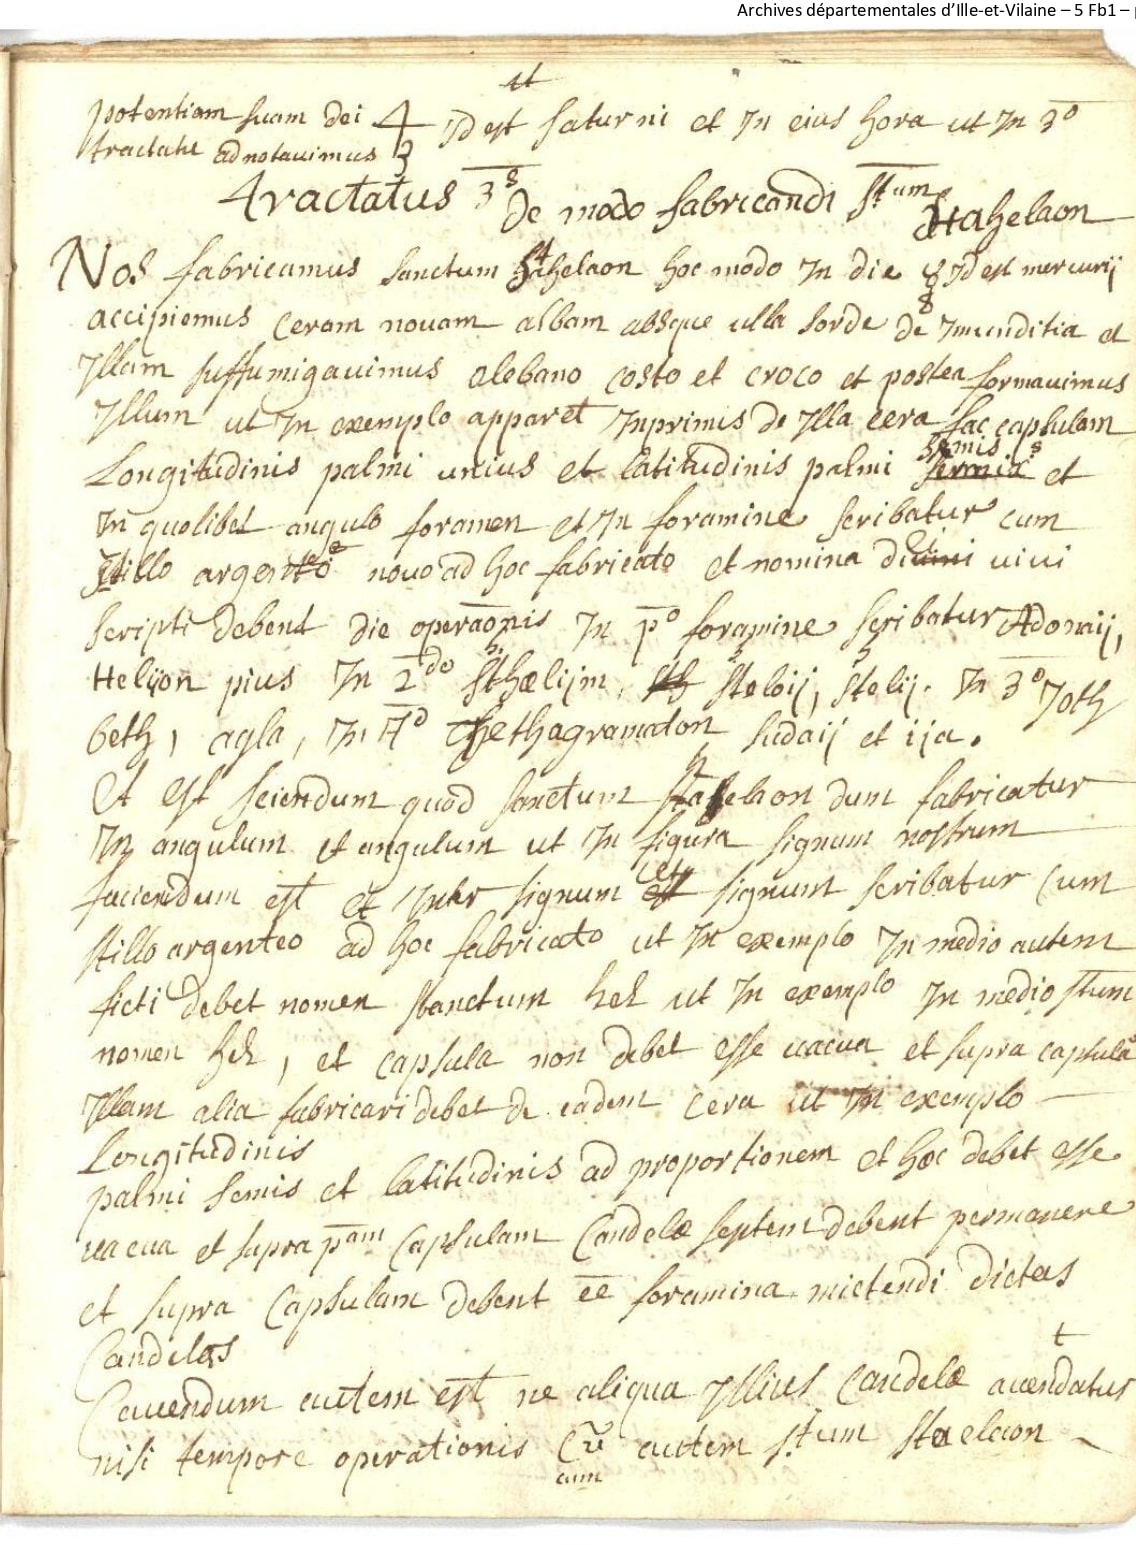 Archives départementales d'Ille-et-Vilaine – 5 Fb1 –
ut
potentiam suam dei 4 Id est saturni et In eius hora ut In 3º
tractatu adnotauimus 3
Tractatus 3s de modo fabricandi stum Hahelaon
Nos fabricamus sanctum hahelaon hoc modo In die Id est mercurij
accipiemus ceram nouam albam absque ulla sorde de Imunditia et
Yllam suffumigauimus alebano costo et croco et postea formauimus
Yllum ut In exemplo apparet Inprimis de Ylla cera fac capsulam
semis
Longitudinis palmi unius et latitudinis palmi et
In quolibet angulo foramen et In foramine scribatur cum
stillo argenteo nouo ad hoc fabricato et nomina diuini uiui
scripti debent die operaōnis In pº foramine scribatur Adonaij,
Helyon pius In 2do sthælijm, steloij, stelij. In 3º Joth
beth, agla, In 4º Thethagramaton sadaij et ija.
Et est sciendum quod sanctum dum fabricatur
In angulum et angulum ut In figura signum nostrum
faciendum est et Inter signum et signum scribatur cum
stillo argenteo ad hoc fabricato ut In exemplo In medio autem
ficti debet nomen stanctum hel ut In exemplo In medio stum
nomen hel, et capsula non debet esse uacua et supra capsulā
Yllam alia fabricari debet de eadem cera ut In exemplo
Longitudinis
palmi semis et latitudinis ad proportionem et hæc debet esse
uacua et supra pam capsulam Candelæ septem debent permanere
et supra Capsulam debent ēē foramina mictendi dictas
Candelas
t
Cauendum autem est ne aliqua Yllius Candelæ acendatur
nisi tempore operationis autem stum staelaon
cum